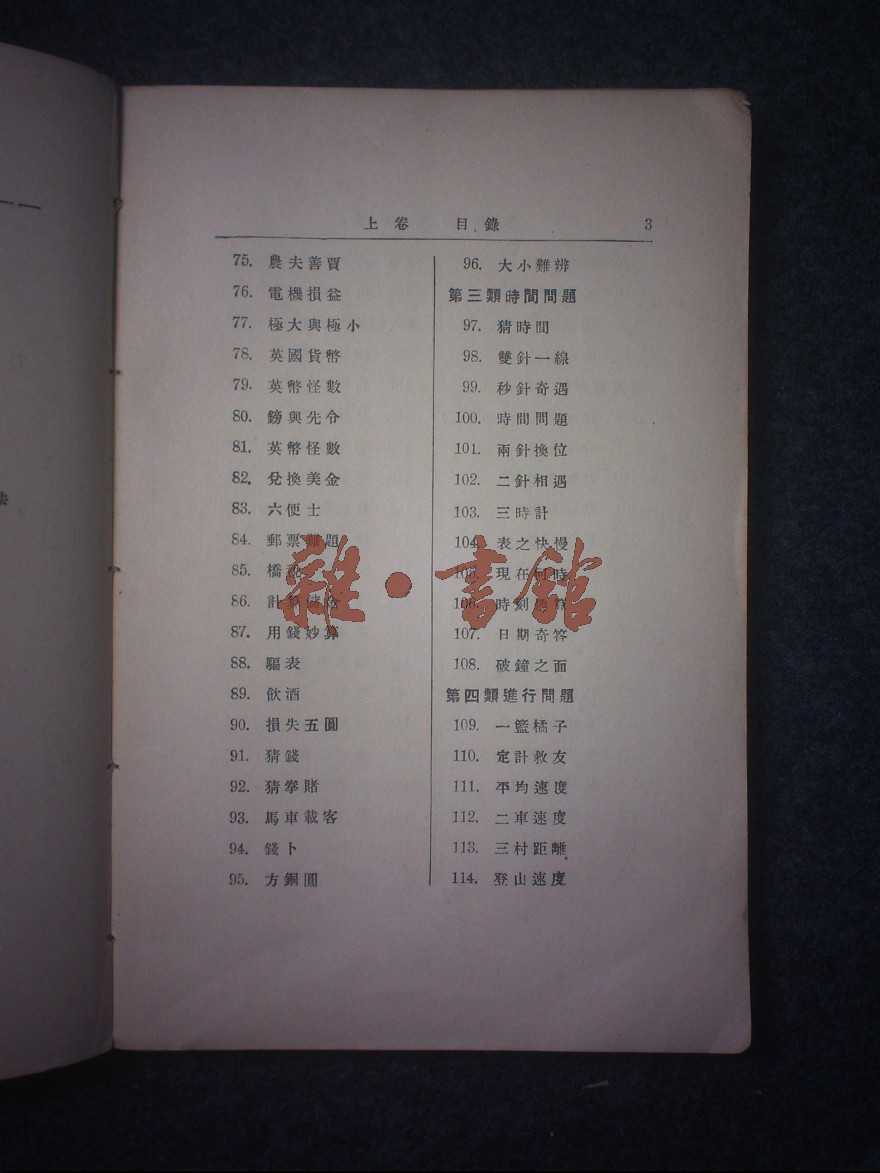 上卷 目錄 3
75. 農夫善賈
76. 電機損益
77. 極大與極小
78. 英國貨幣
79. 英幣怪數
80. 鎊與先令
81. 英幣怪數
82. 兌換美金
83. 六便士
84. 郵票難題
85. 橋稅
86. 計算儲金
87. 用錢妙算
88. 驅表
89. 飲酒
90. 損失五圓
91. 猜錢
92. 猜拳賭
93. 馬車載客
94. 錢卜
95. 方銅圓
96. 大小難辨
第三類時間問題
97. 猜時間
98. 雙針一線
99. 秒針奇遇
100. 時間問題
101. 兩針換位
102. 二針相遇
103. 三時計
104. 表之快慢
105. 現在何時
106. 時刻
107. 日期奇答
108. 破鐘之面
第四類進行問題
109. 一籃橘子
110. 定計救友
111. 平均速度
112. 二車速度
113. 三村距離
114. 登山速度
雜·書館
法